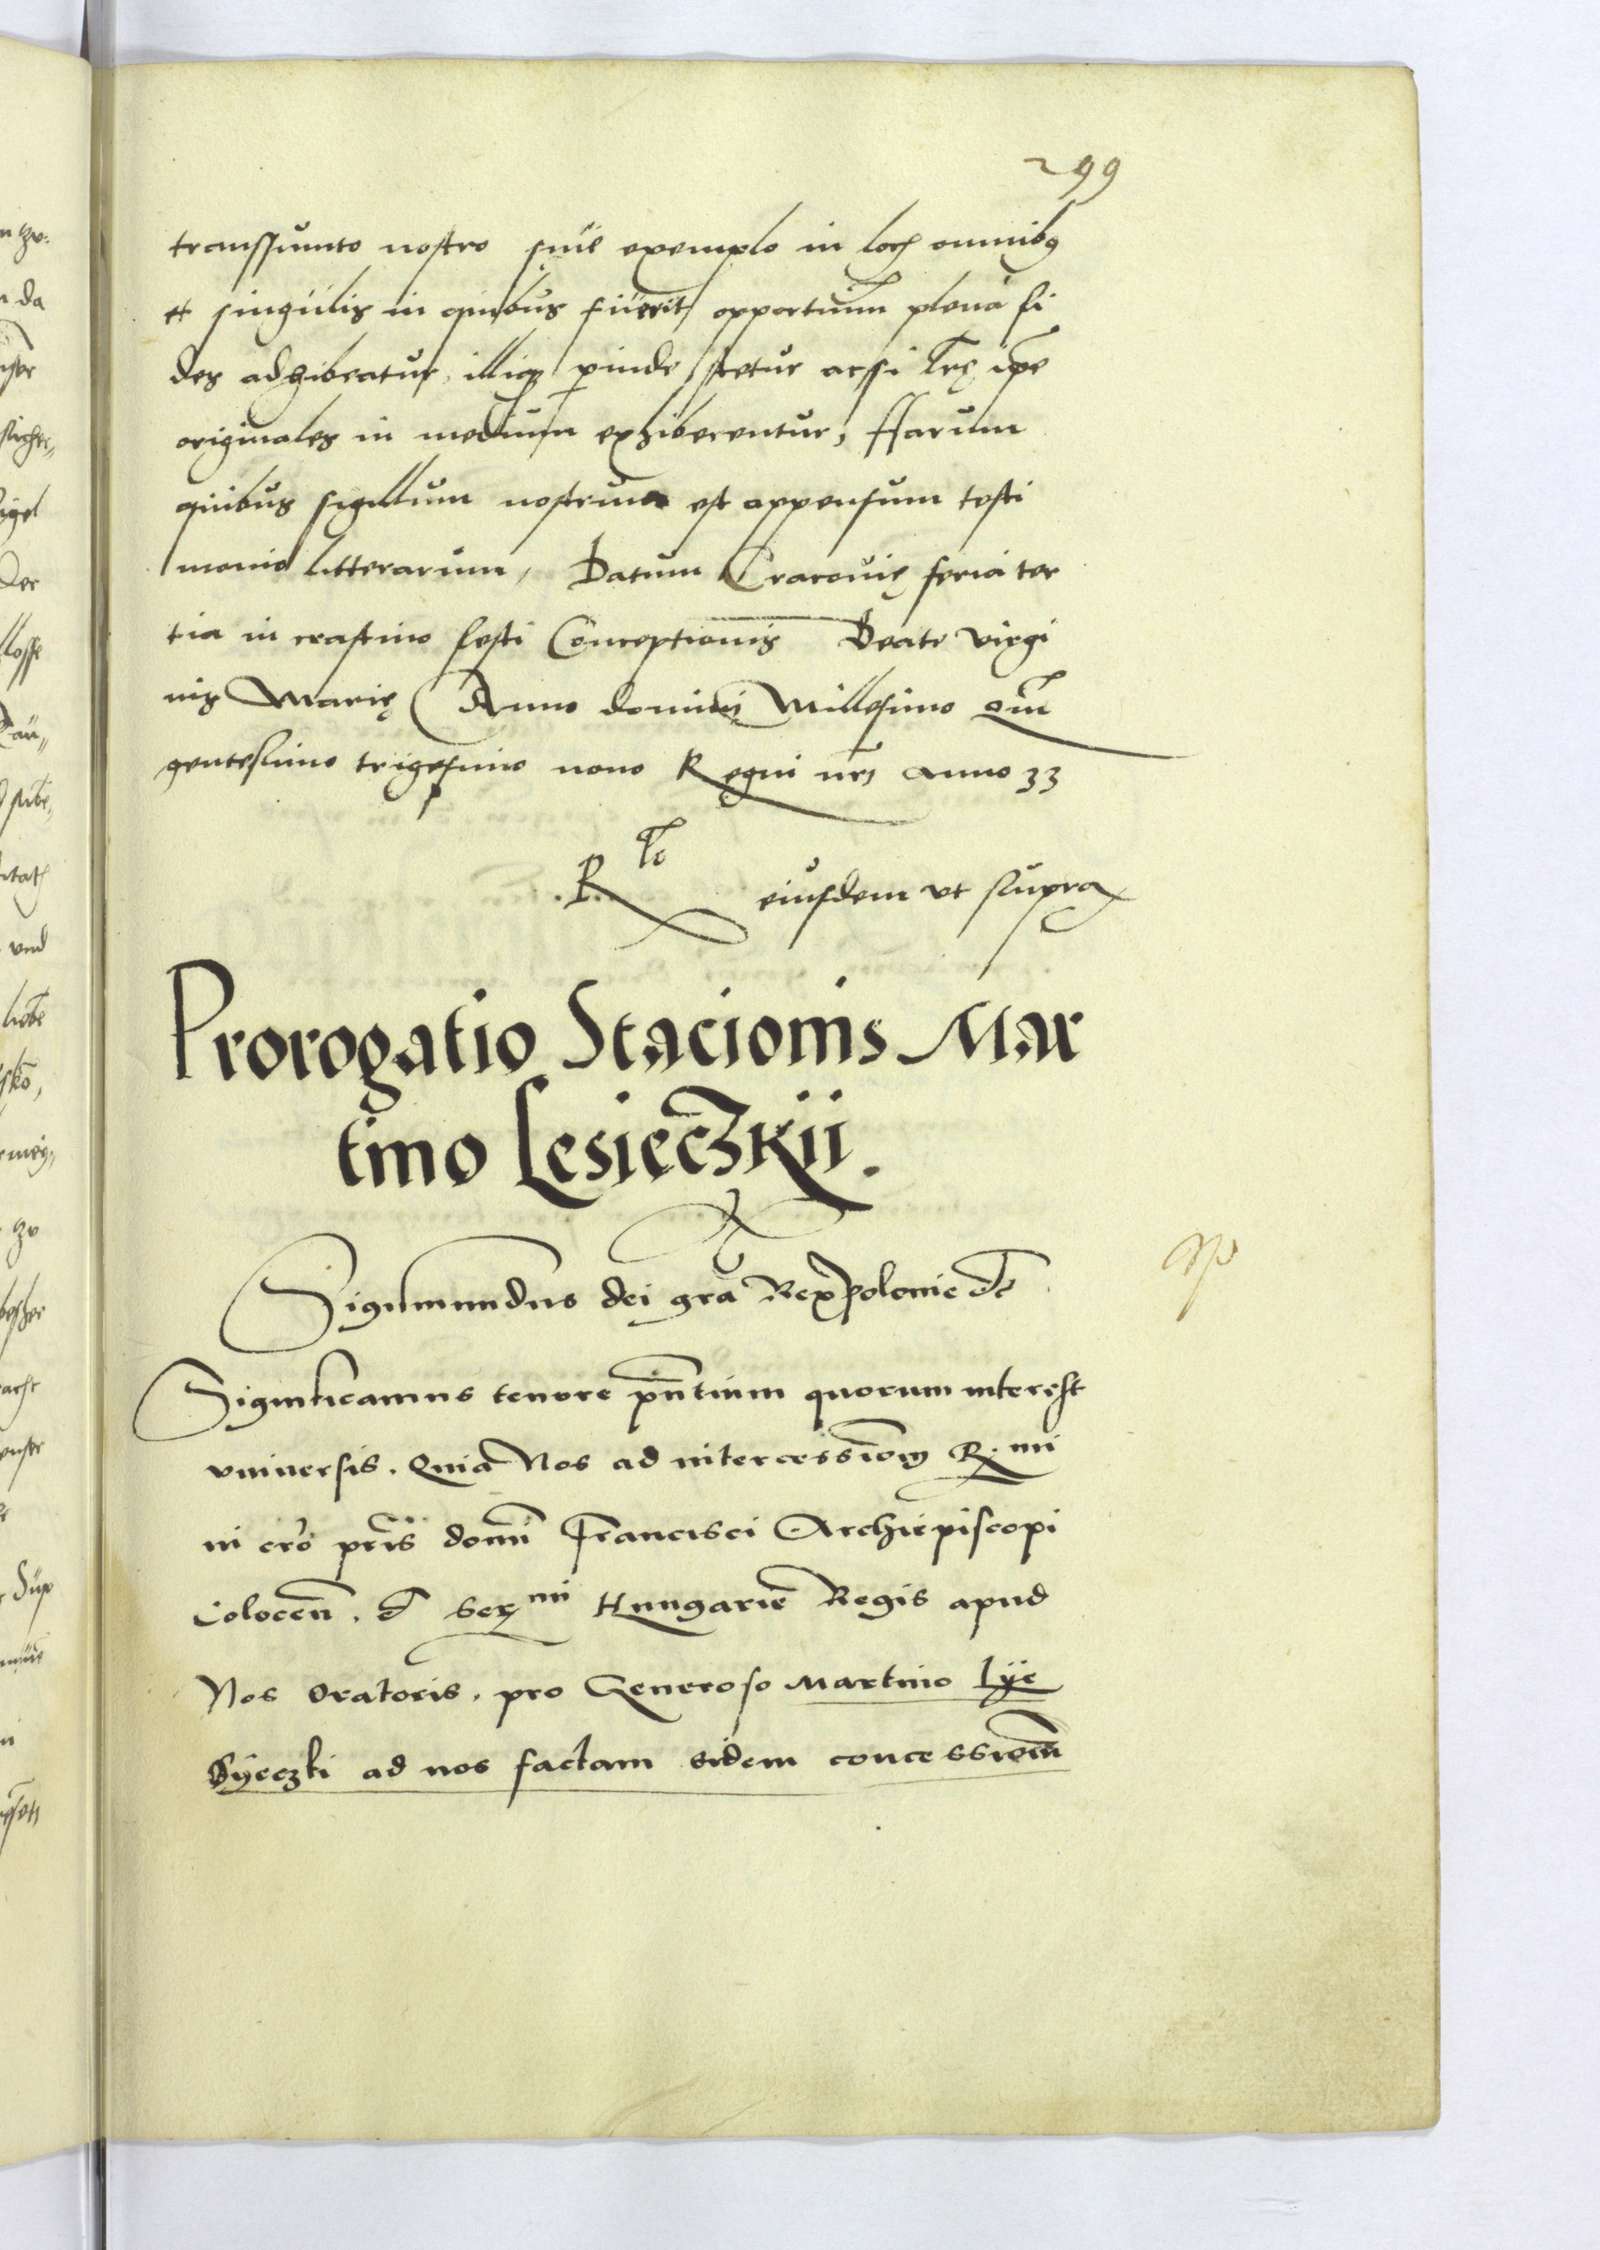 299
transsumto nostro sive exemplo in locis omnibus
et singulis in quibus fuerit opportunum plena fi
des adhibeatur, illiq perinde stetur acsi lre ipse
originales in medium exhiberentur, Harum
quibus sigillum nostrum est appensum testi
monio litterarum, Datum Cracovię feria ter
tia in crastino festi Conceptionis Beate virgi
nis Marię Anno domini Millesimo quin
gentesimo trigesimo nono Regni nri anno 33
.R. eiusdem ut supra
Prorogatio Stacionis Mar
tino Lesieczkii.
Sigismundus dei gra Rex Polonie etc
Significamus tenore pntium quorum interest
universis. Quia Nos ad intercessionem R.mi
in cro pris domi Francisci Archiepiscopi
Colocen. et Sermi Hungarie Regis apud
Nos Oratoris. pro Generoso Martino Lye
Syeczki ad nos factam eidem concessionem